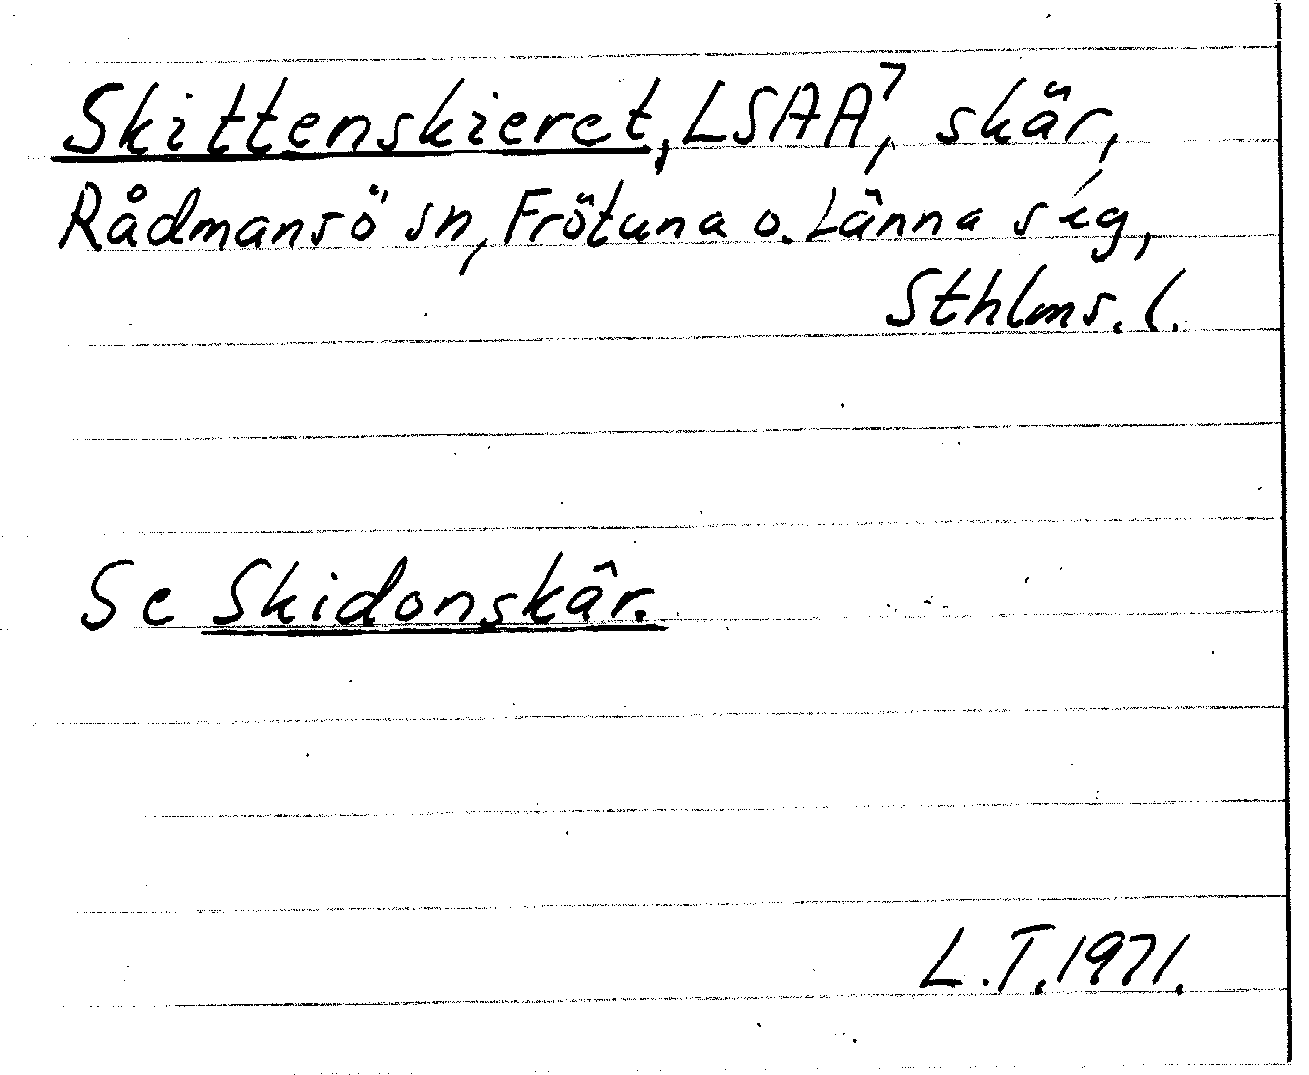 Skittenskieret, LSAA⁷, skär,
Rådmansö sn, Frötuna o. Länna slg,
Sthlms. l.
Se Skidonskär.
L.T.1971.